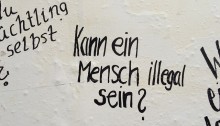 du
ächtling
selbst
?
Kann ein
Mensch illegal
sein?
W